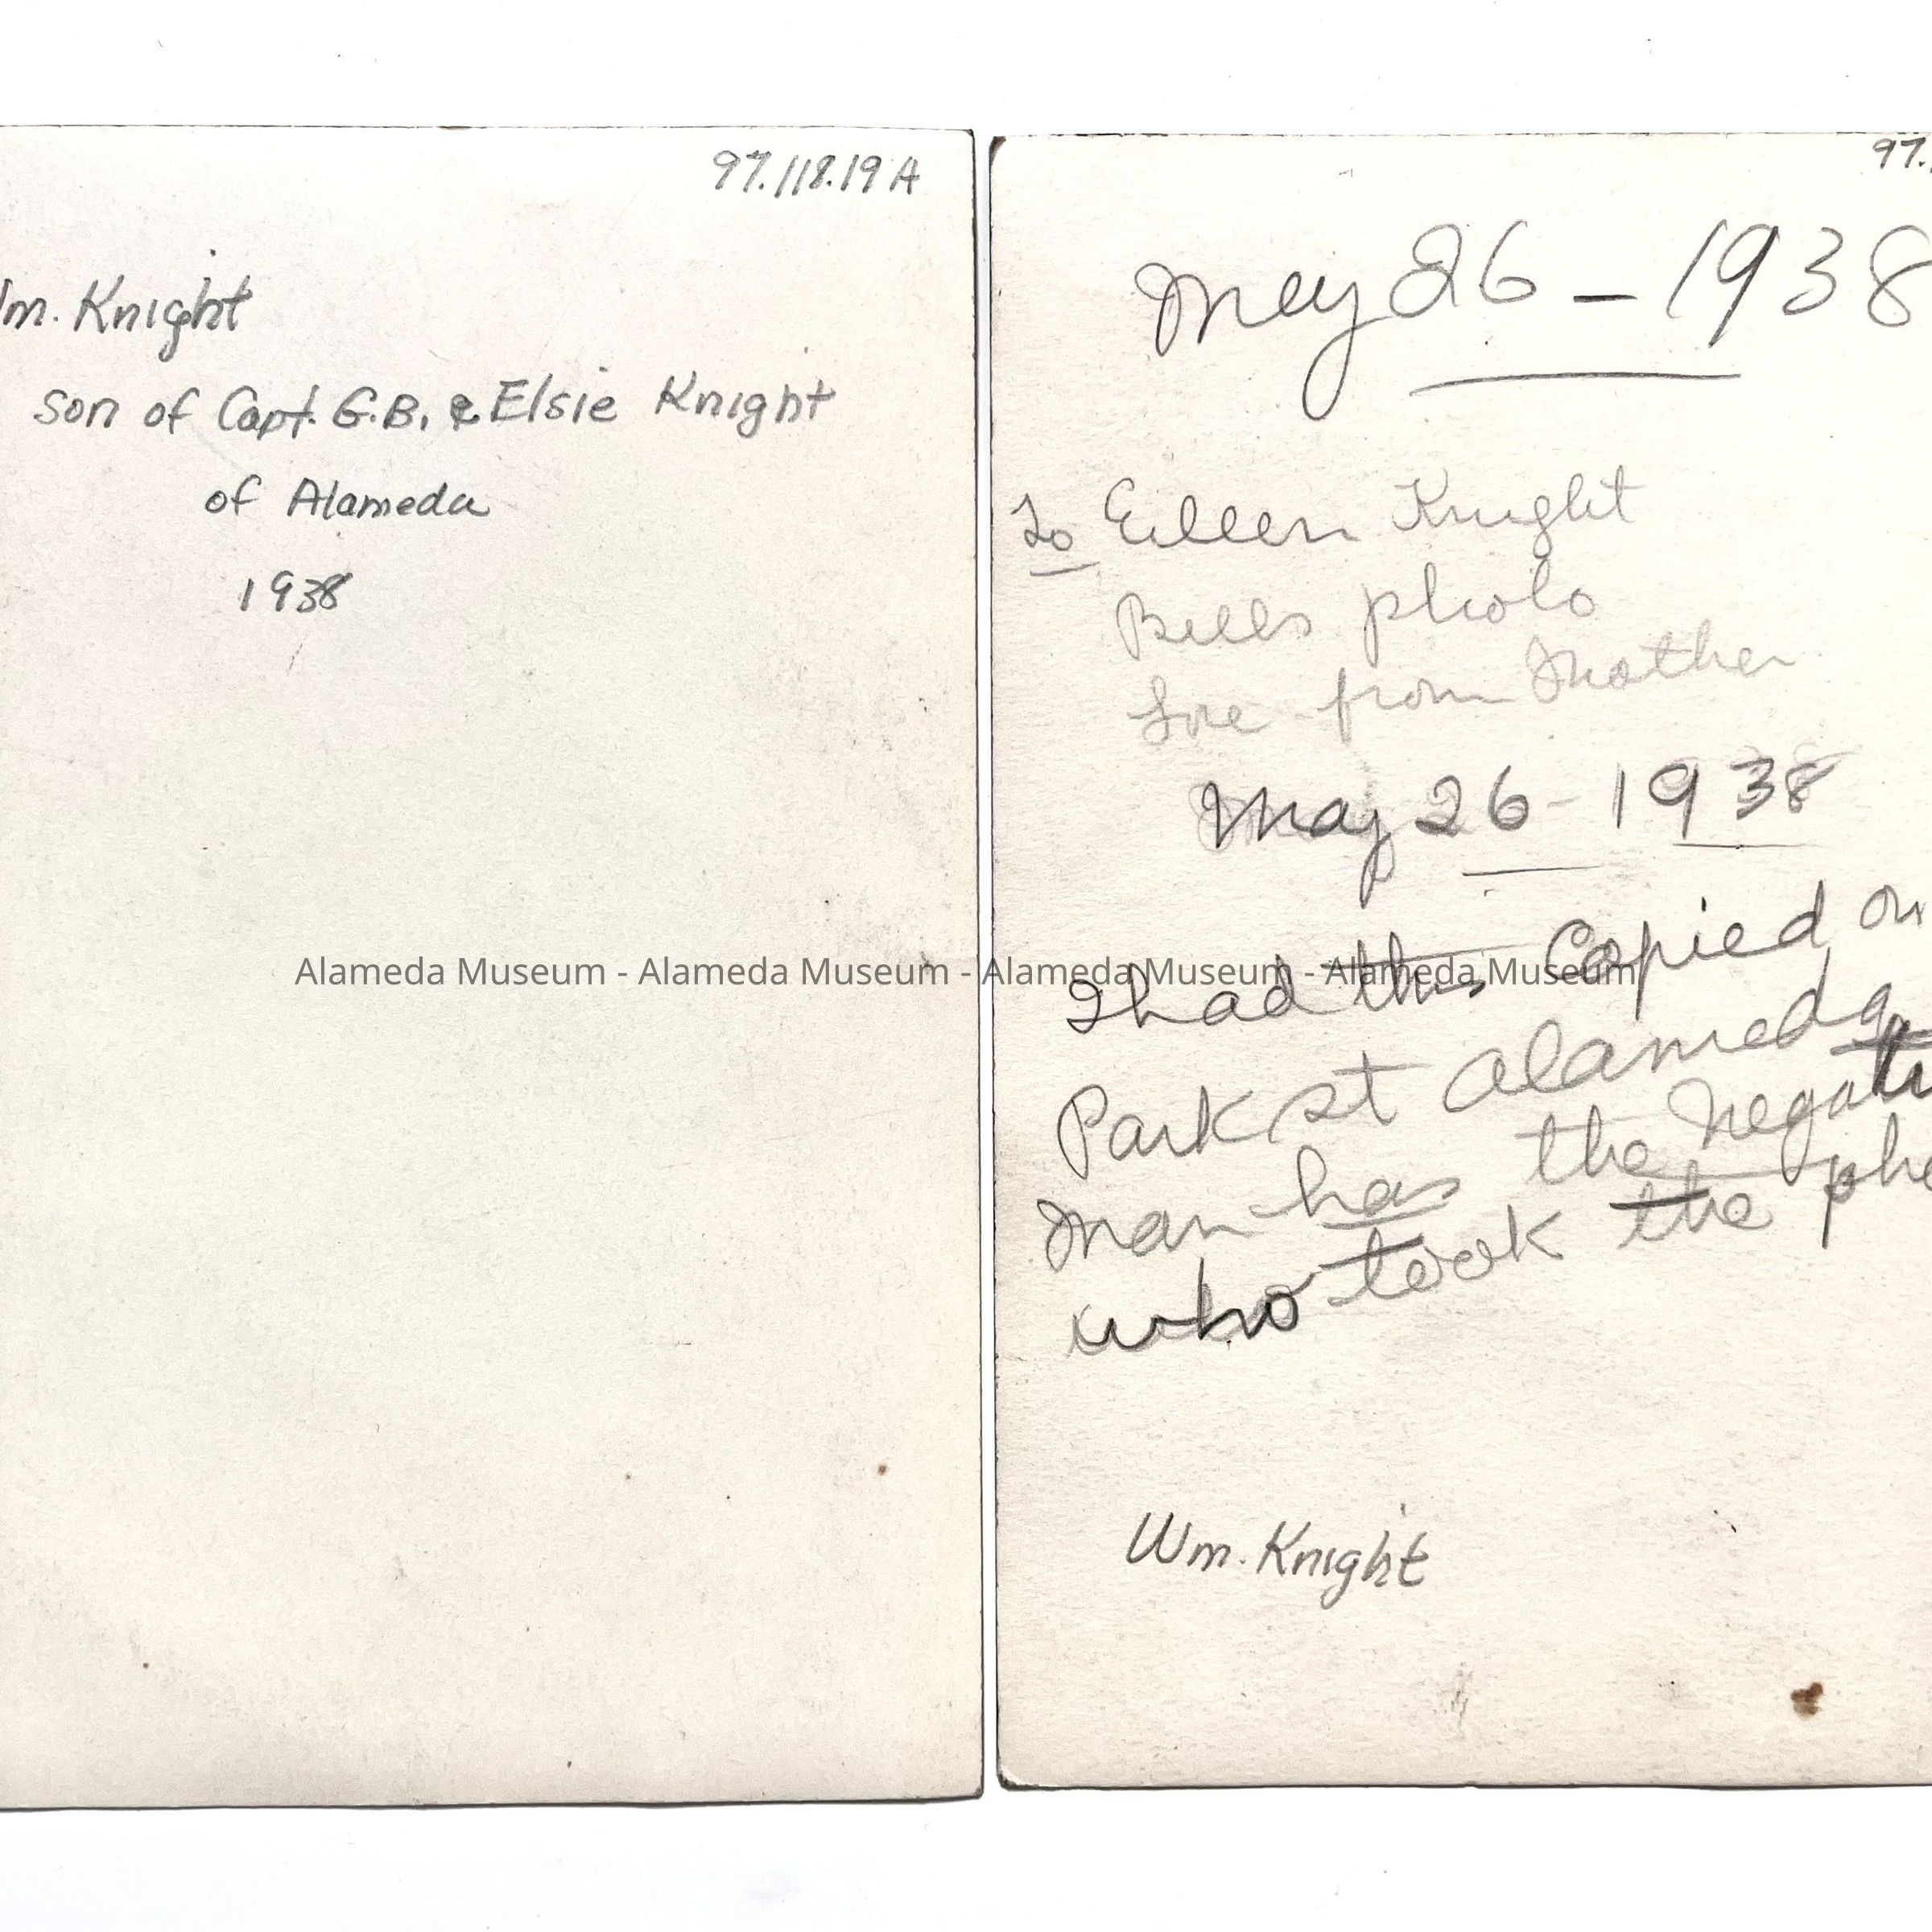 97.118.19 A
m. Knight
son of Capt. G.B. & Elsie Knight
of Alameda
1938
97.
May 26 - 1938
To Eileen Knight
Bills photo
Love from Mother
May 26 - 1938
I had this Copied on
Park st Alameda
Man has the Negati
who took the pho
Wm. Knight
Alameda Museum - Alameda Museum - Alameda Museum - Alameda Museum